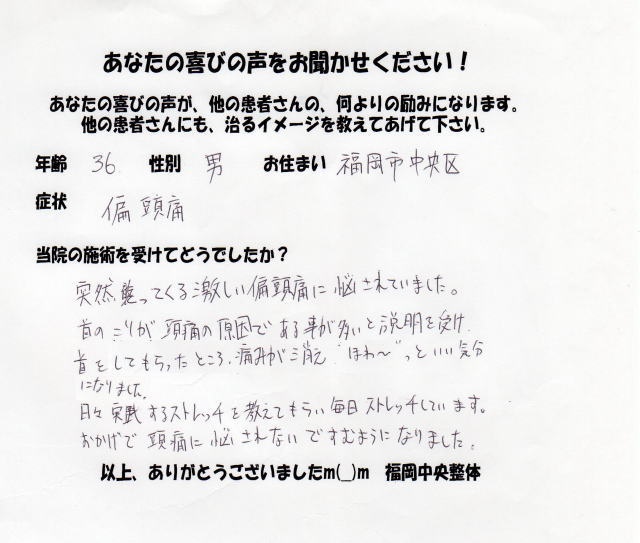 あなたの喜びの声をお聞かせください！
あなたの喜びの声が、他の患者さんの、何よりの励みになります。
他の患者さんにも、治るイメージを教えてあげて下さい。
年齢 36 性別 男 お住まい 福岡市中央区
症状 偏頭痛
当院の施術を受けてどうでしたか？
突然襲ってくる激しい偏頭痛に悩されていました。
首のこりが頭痛の原因である事が多いと説明を受け、
首をしてもらったところ、痛みが消え“ほわ〜”っといい気分
になりました。
日々実践するストレッチを教えてもらい毎日ストレッチしています。
おかげで頭痛に悩されないですむようになりました。
以上、ありがとうございましたm(_)m 福岡中央整体